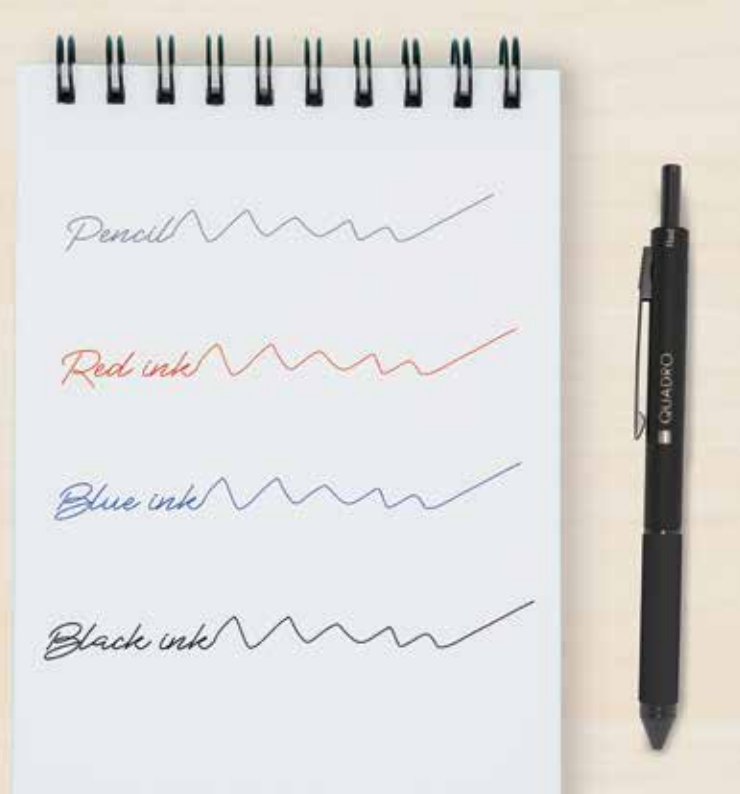 Pencil
Red ink
Blue ink
Black ink
QUADRO